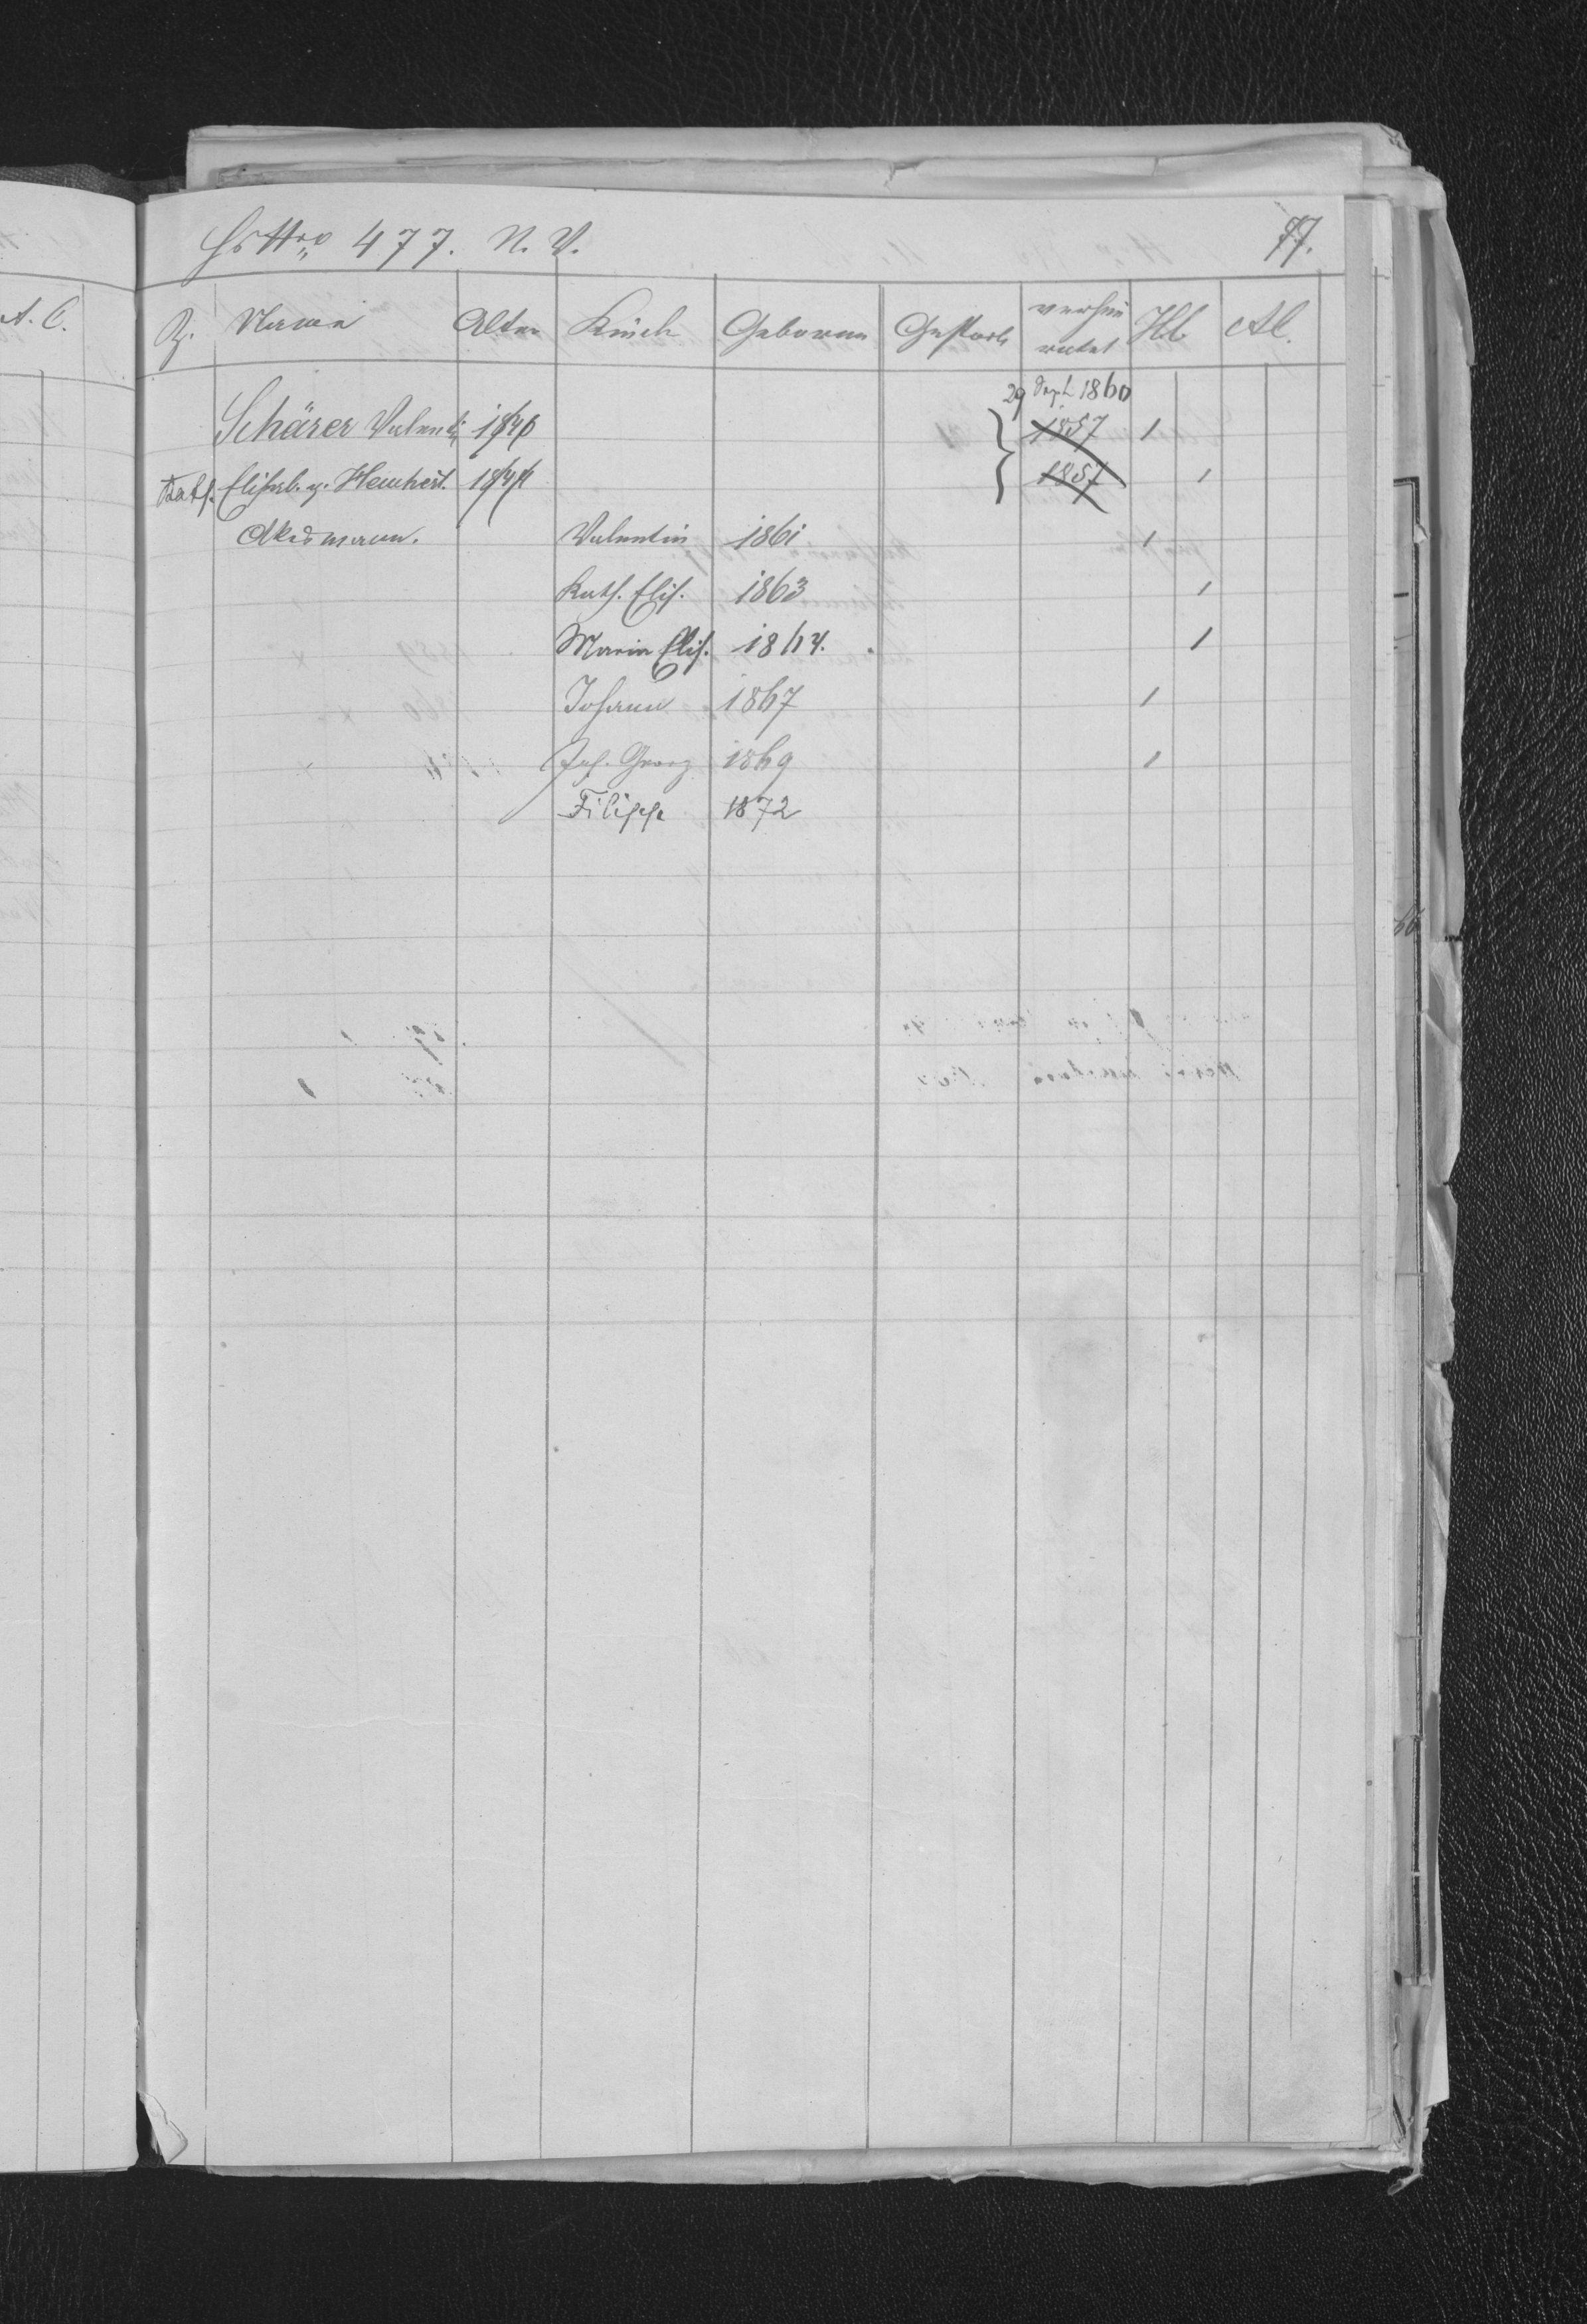 Hs Nro 477. N. V. 77.
Z. Name Alter Kinder Geboren Gestorb verhei ratet Hl. Al.
29 Sept 1860
Schärer Valentin 1840 1857 1
Kath. Elisab. g. 1841 1857 1
Akermann. Valentin 1861 1
Kath. Elis. 1863 1
Maria Elis. 1864. 1
Johann 1867 1
Joh. Georg 1869 1
Filipp 1872
A. C.